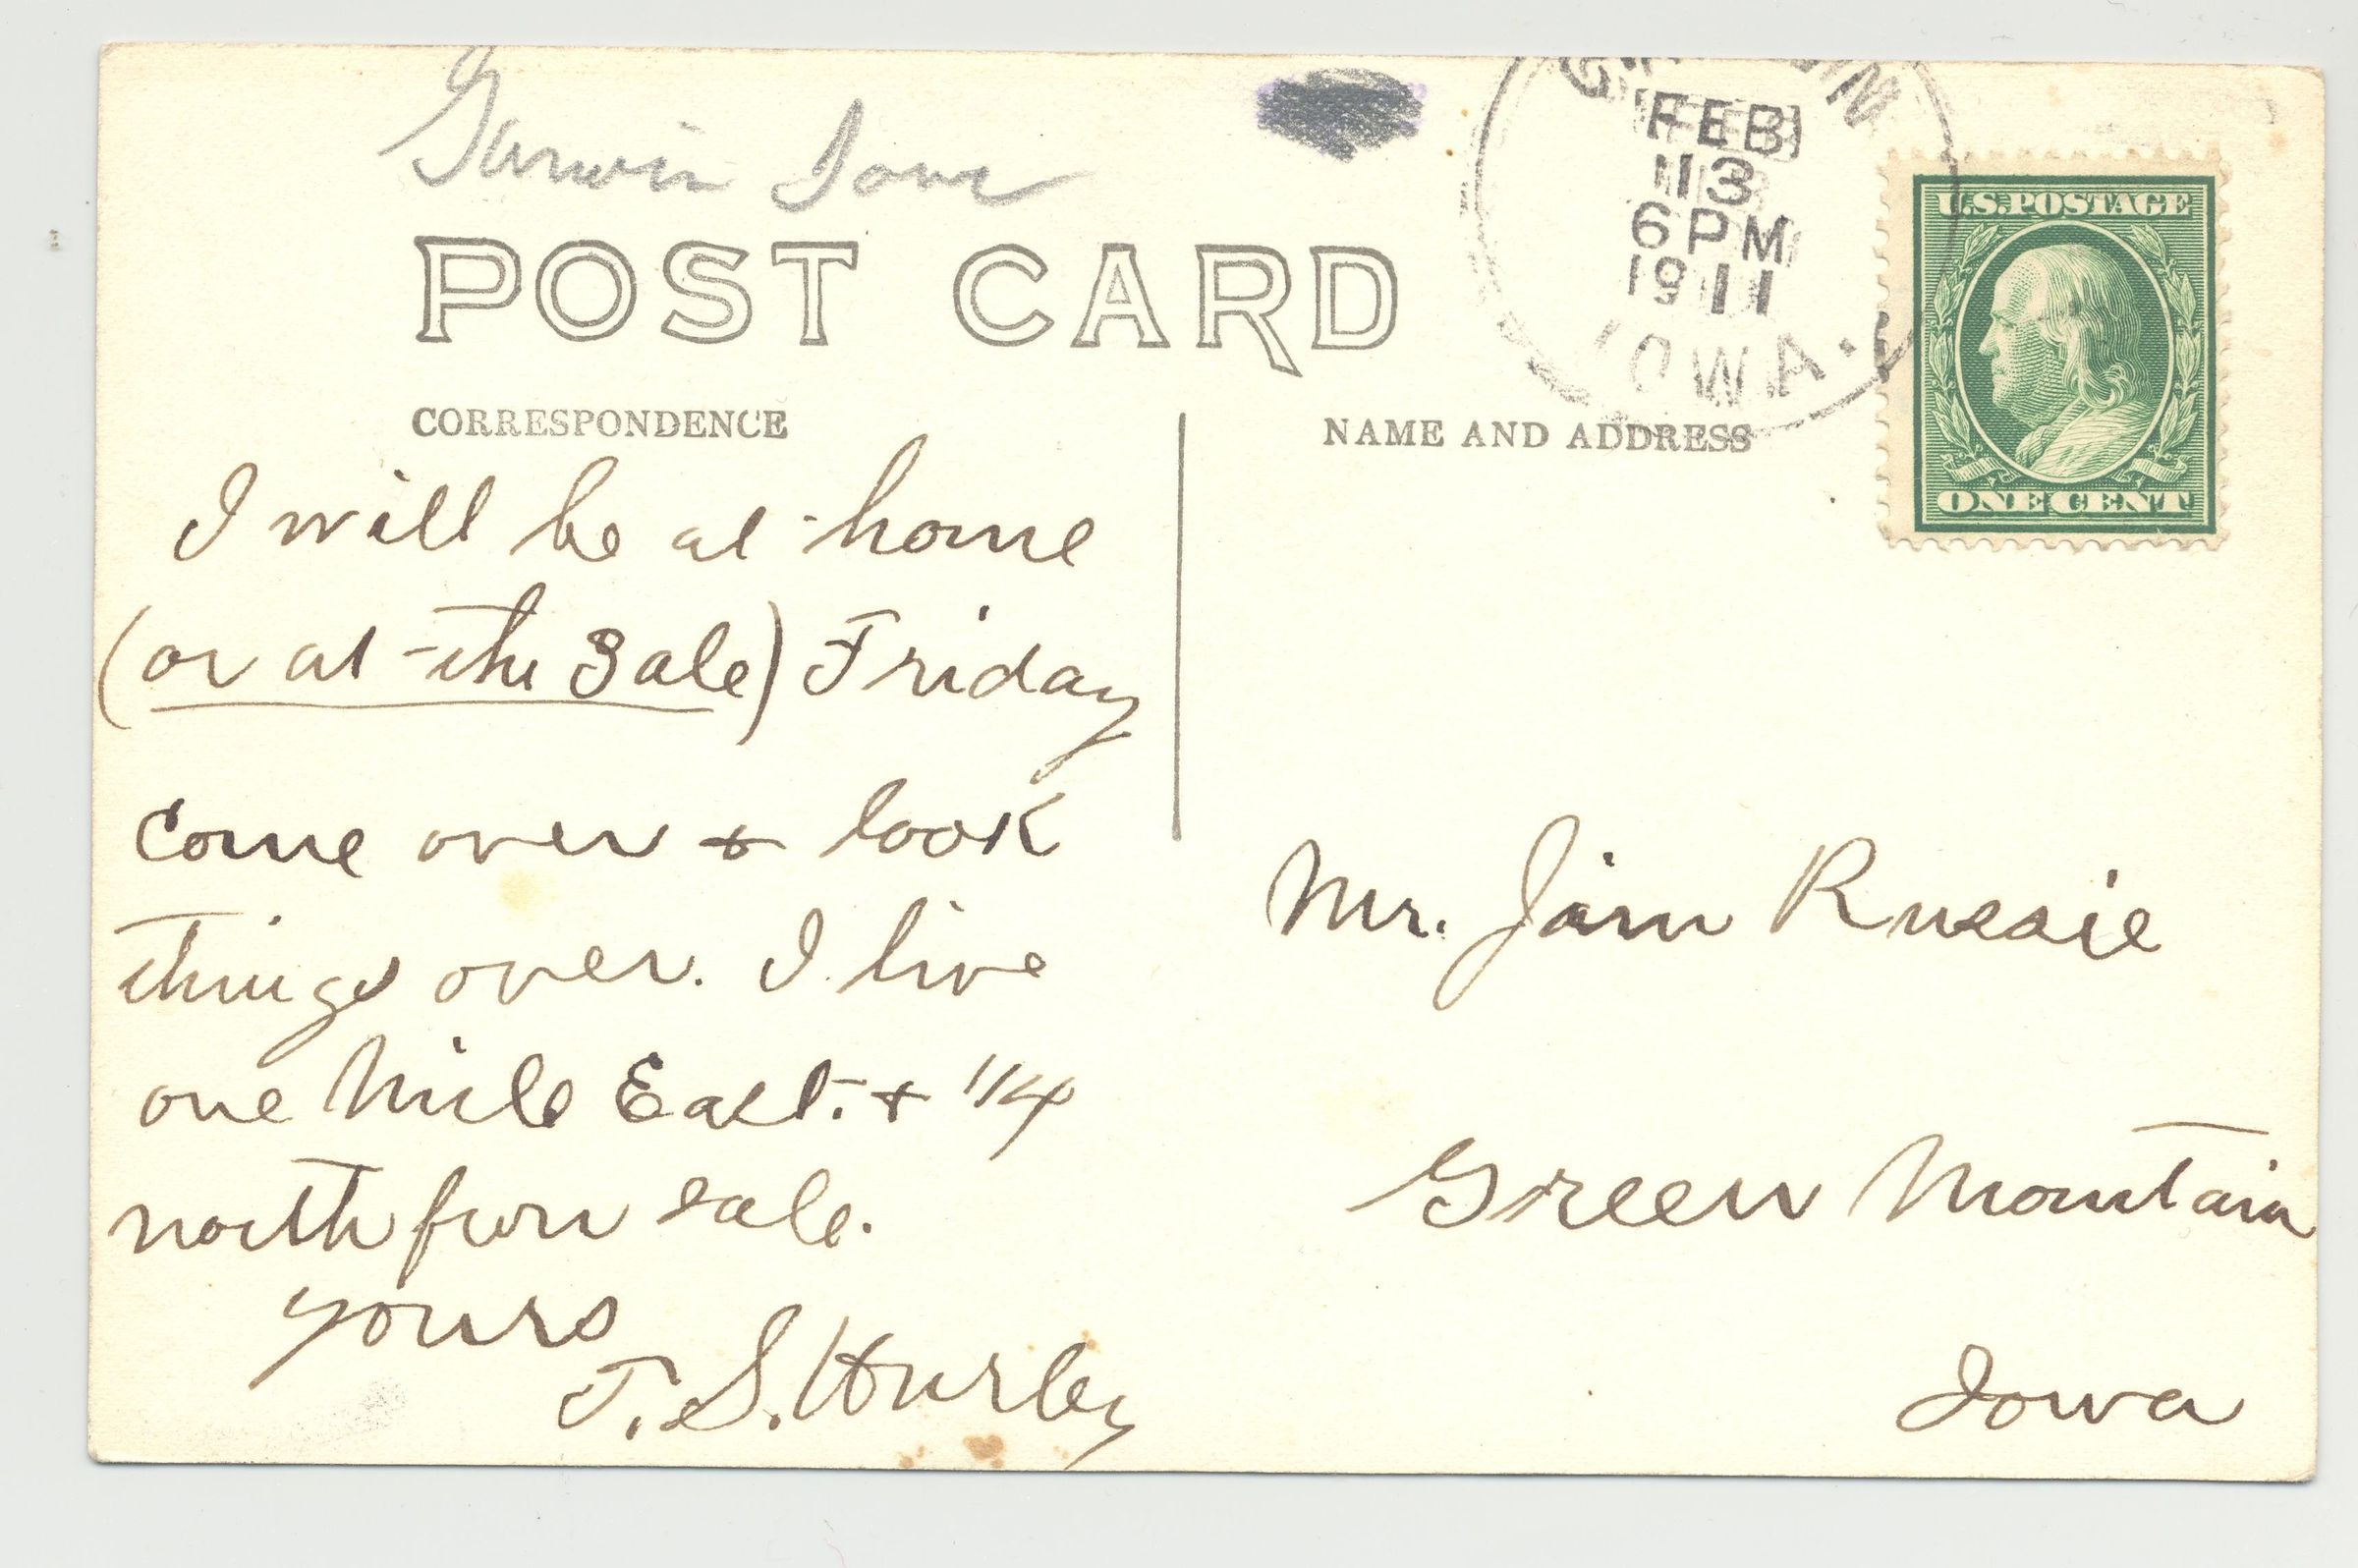 Garwin Iowa
POST CARD
CORRESPONDENCE
NAME AND ADDRESS
FEB
13
6 PM
1911
IOWA.
U.S. POSTAGE
ONE CENT
I will be at home
(or at the Sale) Friday
Come over & look
things over. I live
one Mile East. & 1/4
north from sale.
yours
T. S. Hurley
Mr. Jim Russie
Green Mountain
Iowa